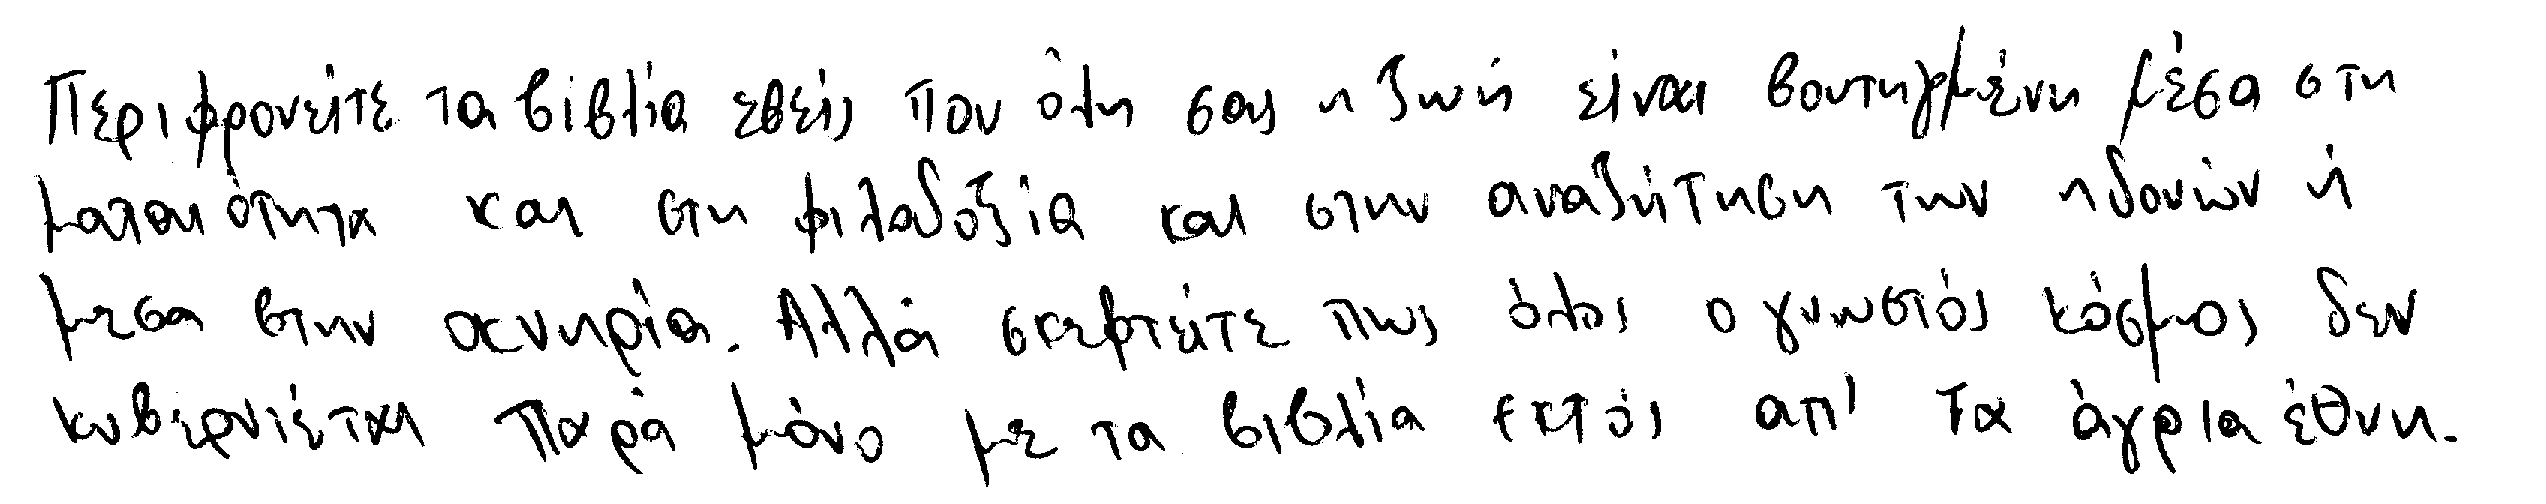 Περιφρονείτε τα βιβλία εσείς που όλη σας η ζωή είναι βουτηγμένη μέσα στη
ματαιότητα και στη φιλοδοξία και στην αναζήτηση των ηδονών ή
μεσα στην οκνηρία. Αλλά σκεφτείτε πως όλος ο γνωστός κόσμος δεν
κυβερνιέται παρά μόνο με τα βιβλία εκτός απ' τα άγρια έθνη.